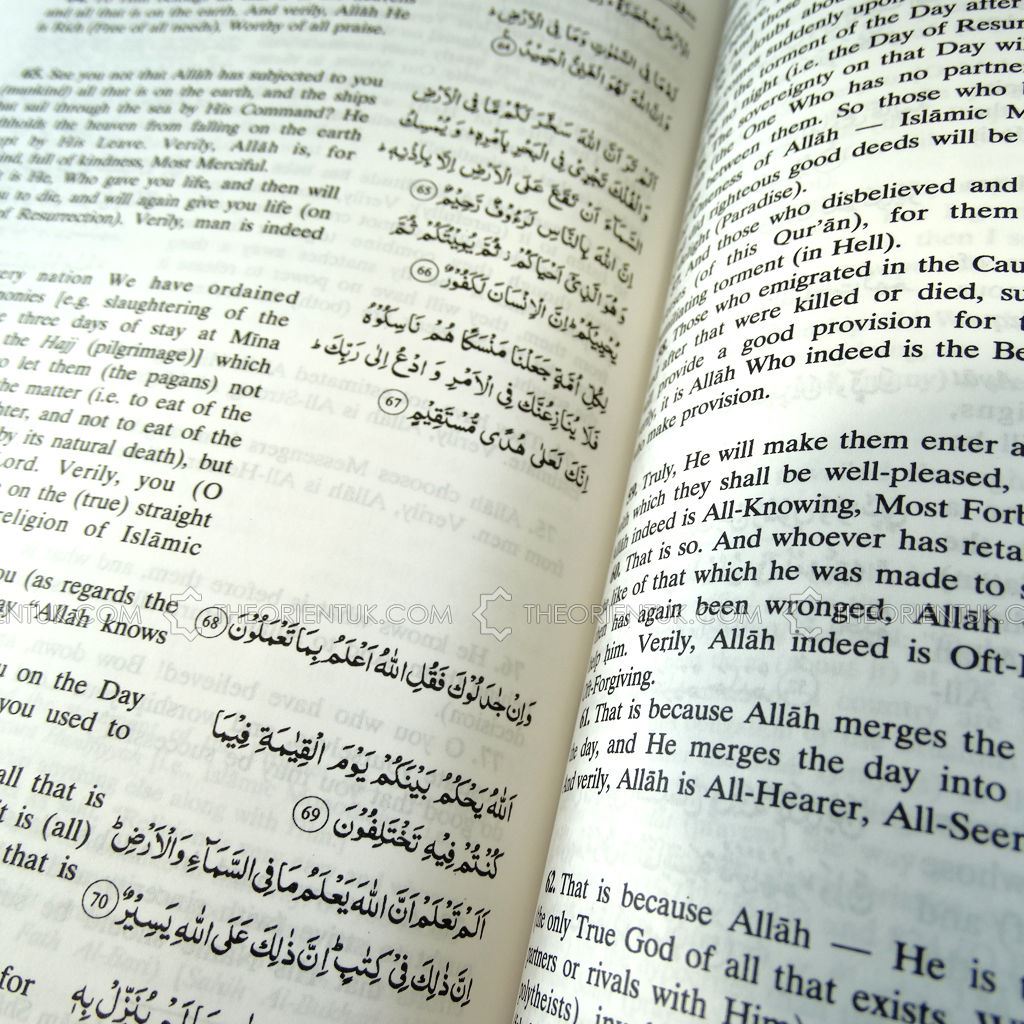 and all that is on the earth. And verily, Allâh He
is Rich (Free of all needs), Worthy of all praise.
65. See you not that Allâh has subjected to you
(mankind) all that is on the earth, and the ships
that sail through the sea by His Command? He
withholds the heaven from falling on the earth
except by His Leave. Verily, Allâh is, for
mankind, full of kindness, Most Merciful.
It is He, Who gave you life, and then will
you to die, and will again give you life (on
of Resurrection). Verily, man is indeed
every nation We have ordained
monies [e.g. slaughtering of the
three days of stay at Mîna
the Hajj (pilgrimage)] which
to let them (the pagans) not
the matter (i.e. to eat of the
and not to eat of the
by its natural death), but
Lord. Verily, you (O
on the (true) straight
religion of Islâmic
you (as regards the
"Allâh knows
on the Day
you used to
all that is
it is (all)
that is
for
لَهُ مَا فِي السَّمٰوٰتِ وَمَا فِي الْاَرْضِ
وَاِنَّ اللّٰهَ لَهُوَ الْغَنِيُّ الْحَمِيْدُ 64
اَلَمْ تَرَ اَنَّ اللّٰهَ سَخَّرَ لَكُمْ مَّا فِي الْاَرْضِ
وَالْفُلْكَ تَجْرِيْ فِي الْبَحْرِ بِاَمْرِهٖ وَيُمْسِكُ
السَّمَآءَ اَنْ تَقَعَ عَلَى الْاَرْضِ اِلَّا بِاِذْنِهٖ
اِنَّ اللّٰهَ بِالنَّاسِ لَرَءُوْفٌ رَّحِيْمٌ 65
وَهُوَ الَّذِيْٓ اَحْيَاكُمْ ثُمَّ يُمِيْتُكُمْ ثُمَّ
يُحْيِيْكُمْ اِنَّ الْاِنْسَانَ لَكَفُوْرٌ 66
لِكُلِّ اُمَّةٍ جَعَلْنَا مَنْسَكًا هُمْ نَاسِكُوْهُ
فَلَا يُنَازِعُنَّكَ فِي الْاَمْرِ وَادْعُ اِلٰى رَبِّكَ
اِنَّكَ لَعَلٰى هُدًى مُّسْتَقِيْمٍ 67
وَاِنْ جٰدَلُوْكَ فَقُلِ اللّٰهُ اَعْلَمُ بِمَا تَعْمَلُوْنَ 68
اَللّٰهُ يَحْكُمُ بَيْنَكُمْ يَوْمَ الْقِيٰمَةِ فِيْمَا
كُنْتُمْ فِيْهِ تَخْتَلِفُوْنَ 69
اَلَمْ تَعْلَمْ اَنَّ اللّٰهَ يَعْلَمُ مَا فِي السَّمَآءِ وَالْاَرْضِ
اِنَّ ذٰلِكَ فِيْ كِتٰبٍ اِنَّ ذٰلِكَ عَلَى اللّٰهِ يَسِيْرٌ 70
يُنَزِّلْ بِهٖ
those about
doubt about
suddenly upon
torment of the Day after
night (i.e. the Day of Resur
sovereignty on that Day wi
(the One Who has no partne
between them. So those who
Oneness of Allâh — Islâmic M
righteous good deeds will be
(Paradise).
And those who disbelieved and
(of this Qur'ân), for them
torment (in Hell).
Those who emigrated in the Cau
after that were killed or died, su
provide a good provision for t
it is Allâh Who indeed is the Be
make provision.
Truly, He will make them enter a
with which they shall be well-pleased,
Allâh indeed is All-Knowing, Most Forb
60. That is so. And whoever has reta
like of that which he was made to s
has again been wronged, Allâh
help him. Verily, Allâh indeed is Oft-
Oft-Forgiving.
61. That is because Allâh merges the
the day, and He merges the day into
And verily, Allâh is All-Hearer, All-Seer
62. That is because Allâh — He is
the only True God of all that exists,
partners or rivals with Him
(polytheists)
THEORIENTUK.COM THEORIENTUK.COM THEORIENTUK.COM